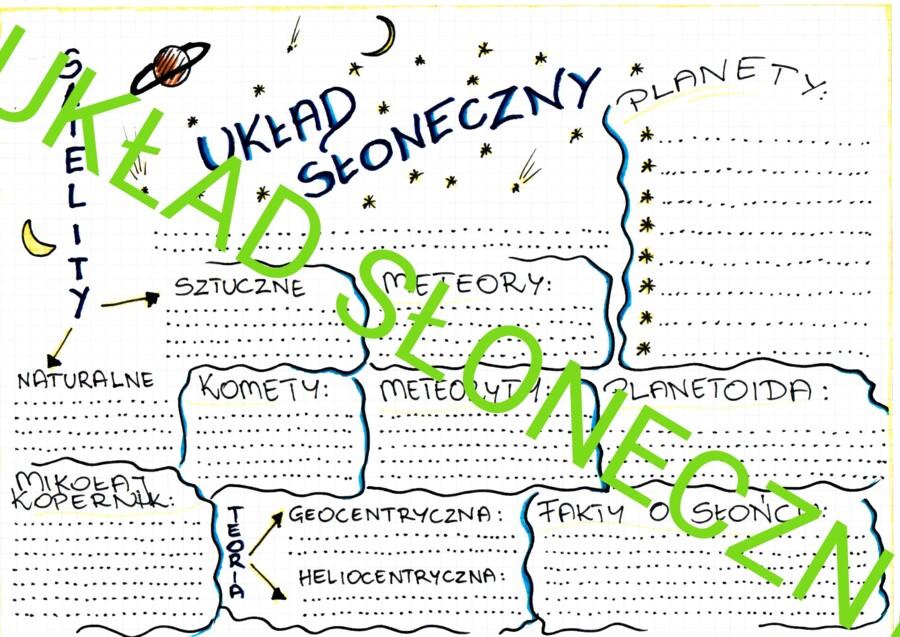 UKŁAD
SŁONECZNY
PLANETY:
SATELITY
SZTUCZNE
METEORY:
NATURALNE
KOMETY:
METEORYTY:
PLANETOIDA:
MIKOŁAJ
KOPERNIK:
TEORIA
GEOCENTRYCZNA:
HELIOCENTRYCZNA:
FAKTY O SŁOŃCU:
UKŁAD SŁONECZN